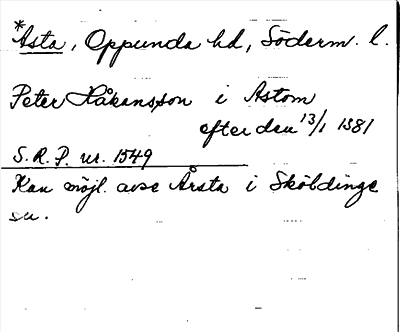 *Åsta, Oppunda hd, Söderm. l.
Peter Håkansson i Åstom
efter den 13/1 1381
S.R.P. nr. 1549
Kan möjl. avse Årsta i Sköldinge
sn.